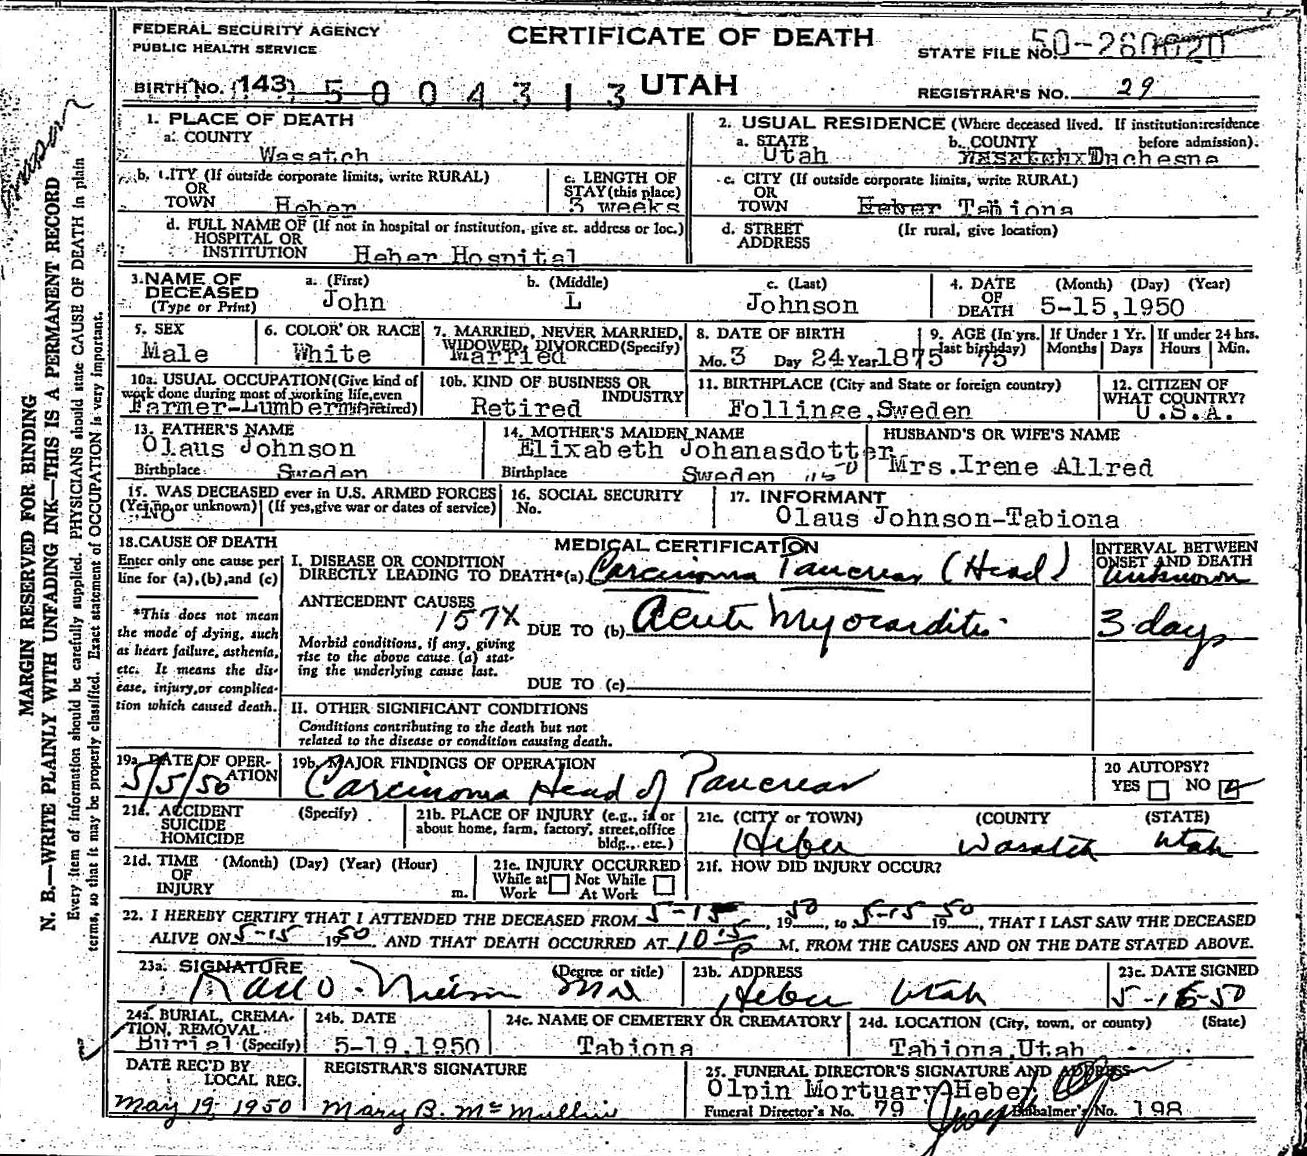 FEDERAL SECURITY AGENCY
PUBLIC HEALTH SERVICE
CERTIFICATE OF DEATH
STATE FILE NO. 50-260020
BIRTH NO. (143) 5 0 0 4 3 1 3
UTAH
REGISTRAR'S NO. 29
MARGIN RESERVED FOR BINDING
N. B.—WRITE PLAINLY WITH UNFADING INK—THIS IS A PERMANENT RECORD
Every item of information should be carefully supplied. PHYSICIANS should state CAUSE OF DEATH in plain
terms, so that it may be properly classified. Exact statement of OCCUPATION is very important.
1. PLACE OF DEATH
a. COUNTY
Wasatch
2. USUAL RESIDENCE (Where deceased lived. If institution:residence
before admission).
a. STATE
Utah
b. COUNTY
Duchesne
b. CITY (If outside corporate limits, write RURAL)
OR
TOWN Heber
c. LENGTH OF
STAY (this place)
3 weeks
c. CITY (If outside corporate limits, write RURAL)
OR
TOWN Heber Tabiona
d. FULL NAME OF (If not in hospital or institution, give st. address or loc.)
HOSPITAL OR
INSTITUTION Heber Hospital
d. STREET
ADDRESS
(If rural, give location)
3. NAME OF
DECEASED
(Type or Print)
a. (First)
John
b. (Middle)
L
c. (Last)
Johnson
4. DATE
OF
DEATH
(Month) (Day) (Year)
5-15,1950
5. SEX
Male
6. COLOR OR RACE
White
7. MARRIED, NEVER MARRIED,
WIDOWED, DIVORCED (Specify)
Married
8. DATE OF BIRTH
Mo. 3 Day 24 Year 1875
9. AGE (In yrs.
last birthday)
75
If Under 1 Yr.
Months Days
If under 24 hrs.
Hours Min.
10a. USUAL OCCUPATION (Give kind of
work done during most of working life, even
if retired)
Farmer-Lumberman
10b. KIND OF BUSINESS OR
INDUSTRY
Retired
11. BIRTHPLACE (City and State or foreign country)
Follinge,Sweden
12. CITIZEN OF
WHAT COUNTRY?
U.S.A.
13. FATHER'S NAME
Olaus Johnson
Birthplace Sweden
14. MOTHER'S MAIDEN NAME
Elixabeth Johanasdotter
Birthplace Sweden
HUSBAND'S OR WIFE'S NAME
Mrs.Irene Allred
15. WAS DECEASED ever in U.S. ARMED FORCES
(Yes, no, or unknown) (If yes, give war or dates of service)
No
16. SOCIAL SECURITY
No.
17. INFORMANT
Olaus Johnson-Tabiona
18. CAUSE OF DEATH
Enter only one cause per
line for (a), (b), and (c)
*This does not mean
the mode of dying, such
as heart failure, asthenia,
etc. It means the dis-
ease, injury, or complica-
tion which caused death.
MEDICAL CERTIFICATION
I. DISEASE OR CONDITION
DIRECTLY LEADING TO DEATH*(a) Carcinoma Pancreas (Head)
INTERVAL BETWEEN
ONSET AND DEATH
Unknown
ANTECEDENT CAUSES
157X
DUE TO (b) Acute Myocarditis
3 days
Morbid conditions, if any, giving
rise to the above cause (a) stat-
ing the underlying cause last.
DUE TO (c)
II. OTHER SIGNIFICANT CONDITIONS
Conditions contributing to the death but not
related to the disease or condition causing death.
19a. DATE OF OPER-
ATION
5/5/50
19b. MAJOR FINDINGS OF OPERATION
Carcinoma Head of Pancreas
20 AUTOPSY?
YES NO
21a. ACCIDENT
SUICIDE
HOMICIDE
(Specify)
21b. PLACE OF INJURY (e.g., in or
about home, farm, factory, street, office
bldg., etc.)
21c. (CITY or TOWN) (COUNTY) (STATE)
Heber Wasatch Utah
21d. TIME (Month) (Day) (Year) (Hour)
OF
INJURY
m.
21e. INJURY OCCURRED
While at Not While
Work At Work
21f. HOW DID INJURY OCCUR?
22. I HEREBY CERTIFY THAT I ATTENDED THE DECEASED FROM 5-15, 1950, to 5-15-50 19, THAT I LAST SAW THE DECEASED
ALIVE ON 5-15 1950 AND THAT DEATH OCCURRED AT 10 15 P M. FROM THE CAUSES AND ON THE DATE STATED ABOVE.
23a. SIGNATURE (Degree or title)
Karl O. Nielson MD
23b. ADDRESS
Heber Utah
23c. DATE SIGNED
5-16-50
24a. BURIAL, CREMA-
TION, REMOVAL
Burial (Specify)
24b. DATE
5-19,1950
24c. NAME OF CEMETERY OR CREMATORY
Tabiona
24d. LOCATION (City, town, or county) (State)
Tabiona,Utah
DATE REC'D BY
LOCAL REG.
May 19, 1950
REGISTRAR'S SIGNATURE
Mary B. McMullin
25. FUNERAL DIRECTOR'S SIGNATURE AND ADDRESS
Olpin Mortuary-Heber
Funeral Director's No. 79
Embalmer's No. 198